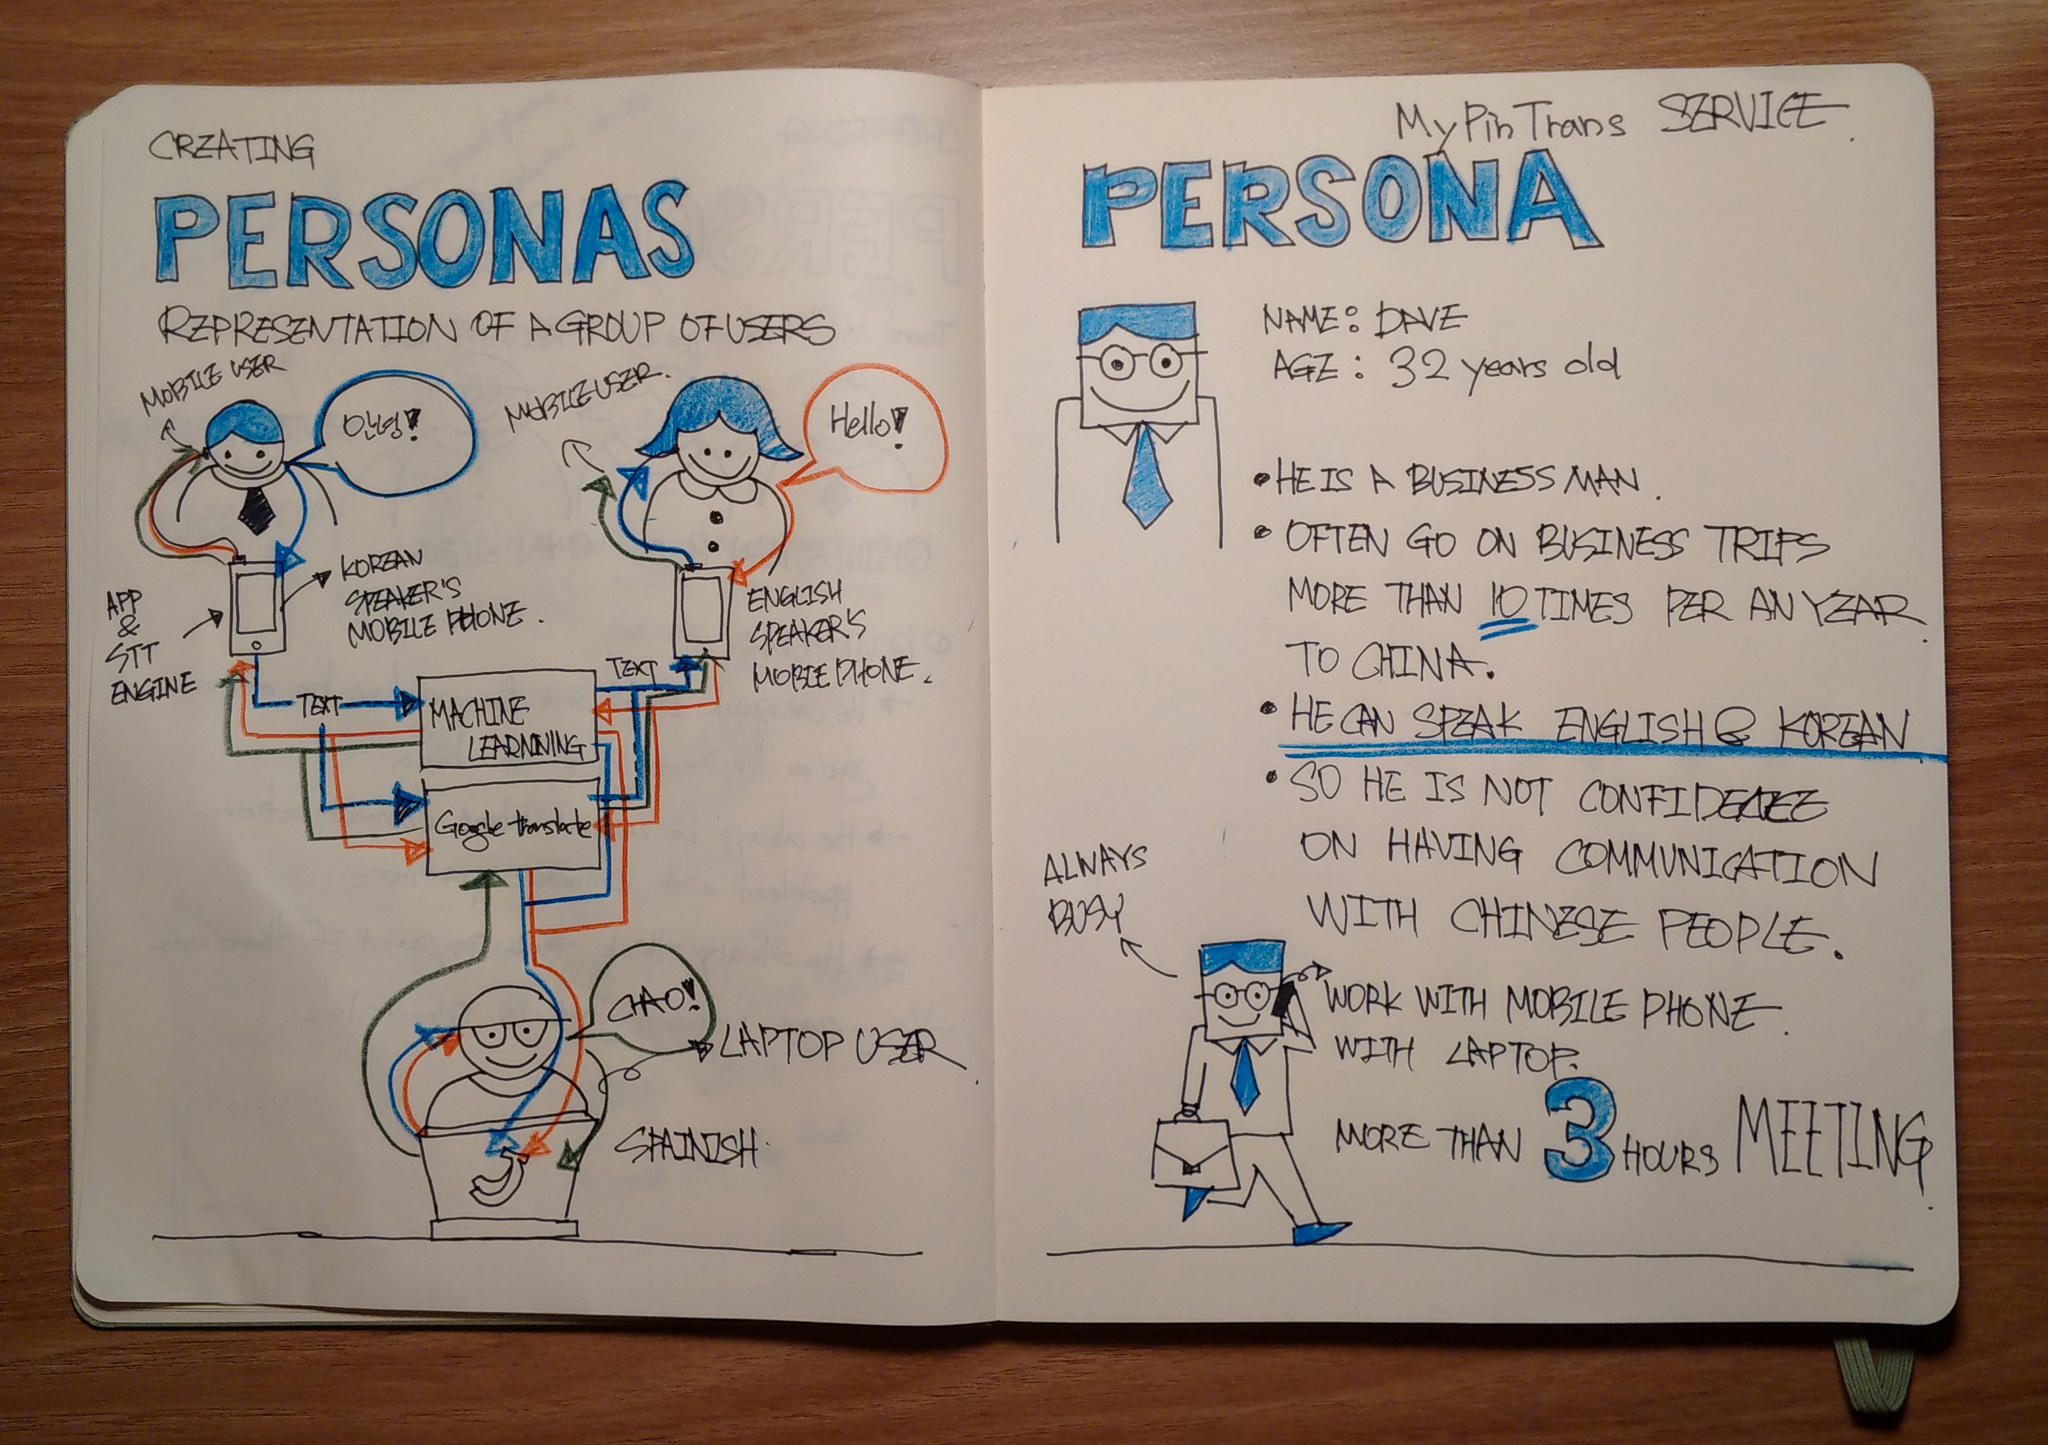 CREATING
PERSONAS
REPRESENTATION OF A GROUP OF USERS
MOBILE USER
안녕!
MOBILE USER.
Hello!
APP
&
STT
ENGINE
KOREAN
SPEAKER'S
MOBILE PHONE.
ENGLISH
SPEAKER'S
MOBILE PHONE.
TEXT
TEXT
MACHINE
LEARNNING
Google translate
CHAO!
LAPTOP USER
SPAINISH.
MyPinTrans SERVICE.
PERSONA
NAME: DAVE
AGE: 32 years old
• HE IS A BUSINESS MAN.
• OFTEN GO ON BUSINESS TRIPS
MORE THAN 10 TIMES PER AN YEAR
TO CHINA.
• HE CAN SPEAK ENGLISH & KOREAN
• SO HE IS NOT
ON HAVING COMMUNICATION
WITH CHINESE PEOPLE.
ALWAYS
BUSY
WORK WITH MOBILE PHONE.
WITH LAPTOP.
MORE THAN 3 HOURS MEETING.